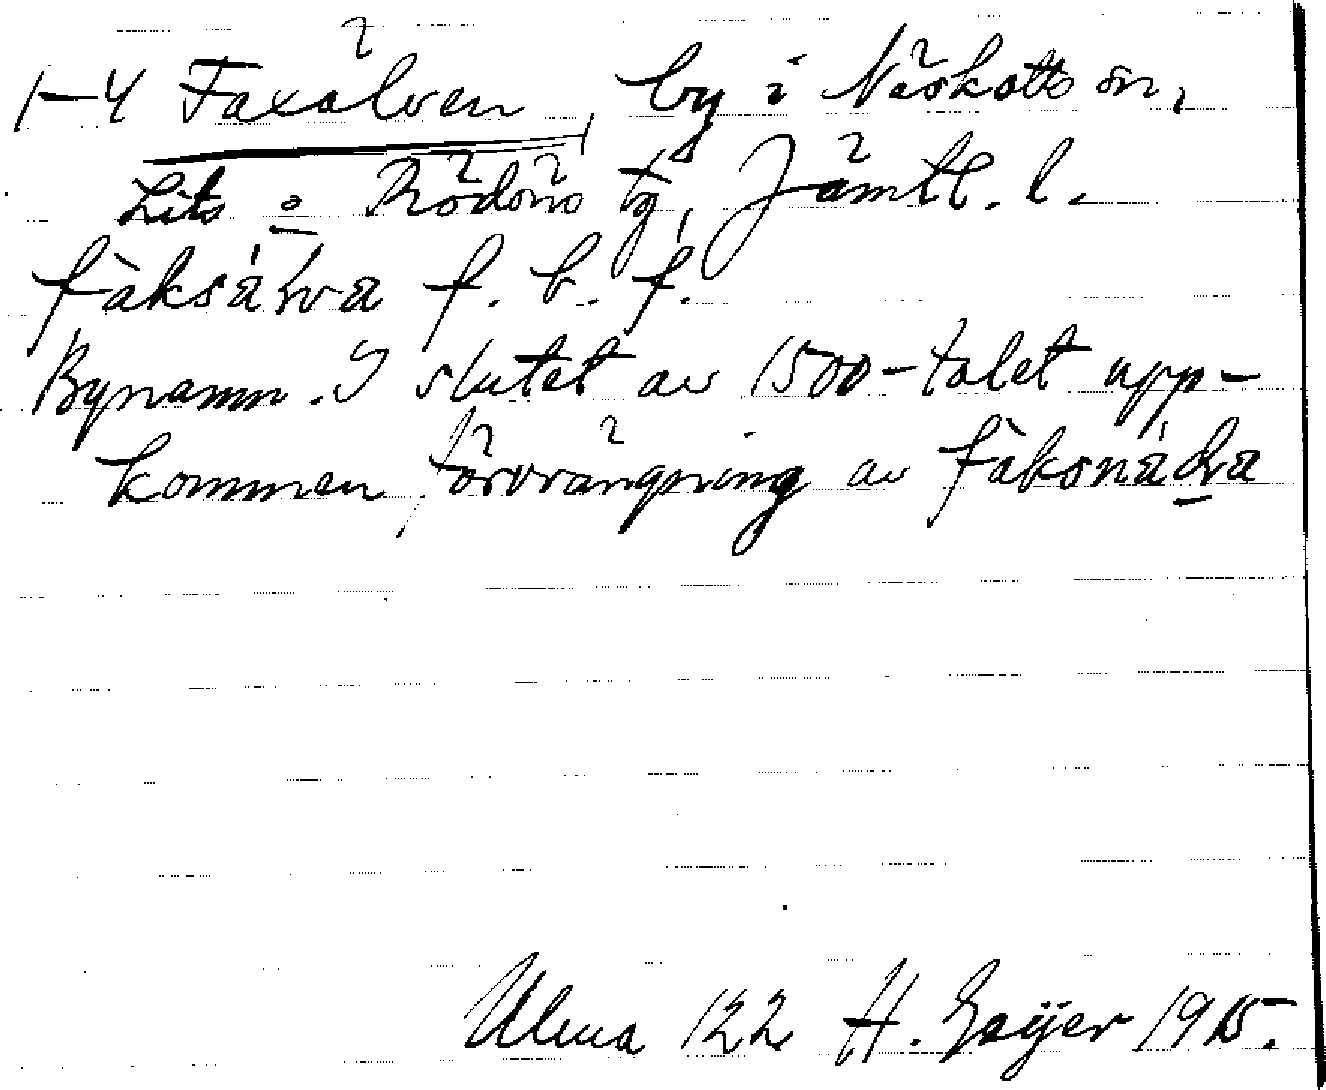 1-4 Faxälven, by i Näskotts sn,
Lits o Rödöns tg, Jämtl. l.
fàksä́lva f. b. f.
Bynamn. I slutet av 1500-talet upp-
kommen förvrängning av fàksnä́dra
Ulma 122 H. Geijer 1915.